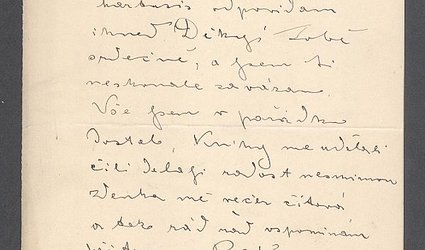 odpovídám
ihned Děkuji Tobě
srdečně, a jsem Ti
neskonale zavázán.
Vše jsem v pořádku
dostal, Knihy me udělali
čili delají radost nesmírnou
Zdenka mě večer čítává
a tak rád vzpomínám